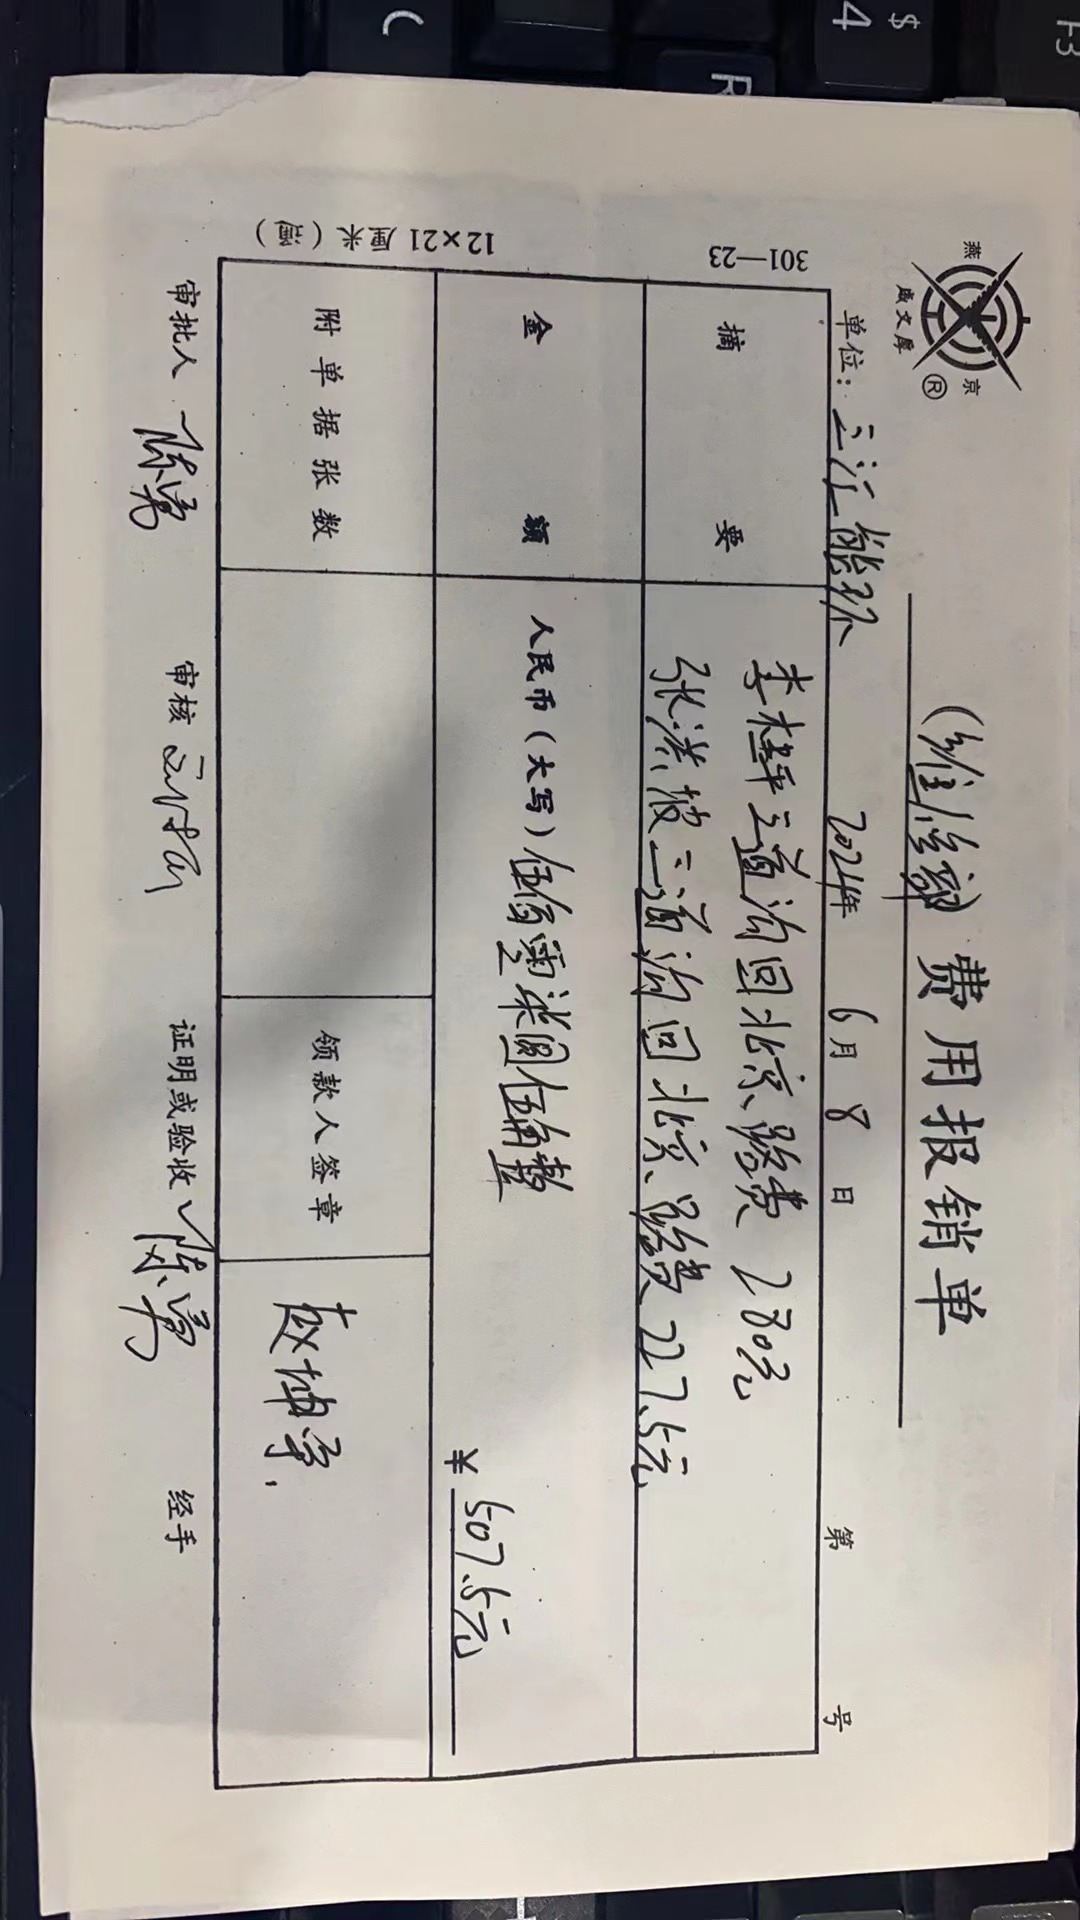 燕京
威文库
®
（维修部）费用报销单
单位：三江能环 2024年 6月 8日 第 号
摘要 李桂平三道沟回北京路费 280元
张洪坡三道沟回北京路费 227.5元
金额 人民币（大写）伍佰零柒圆伍角整
¥ 507.5元
附单据张数 领款人签章 赵坤学
审批人 陈勇 审核 证明或验收 陈勇 经手
301—23
12×21厘米（通）
C
R
$
4
F3